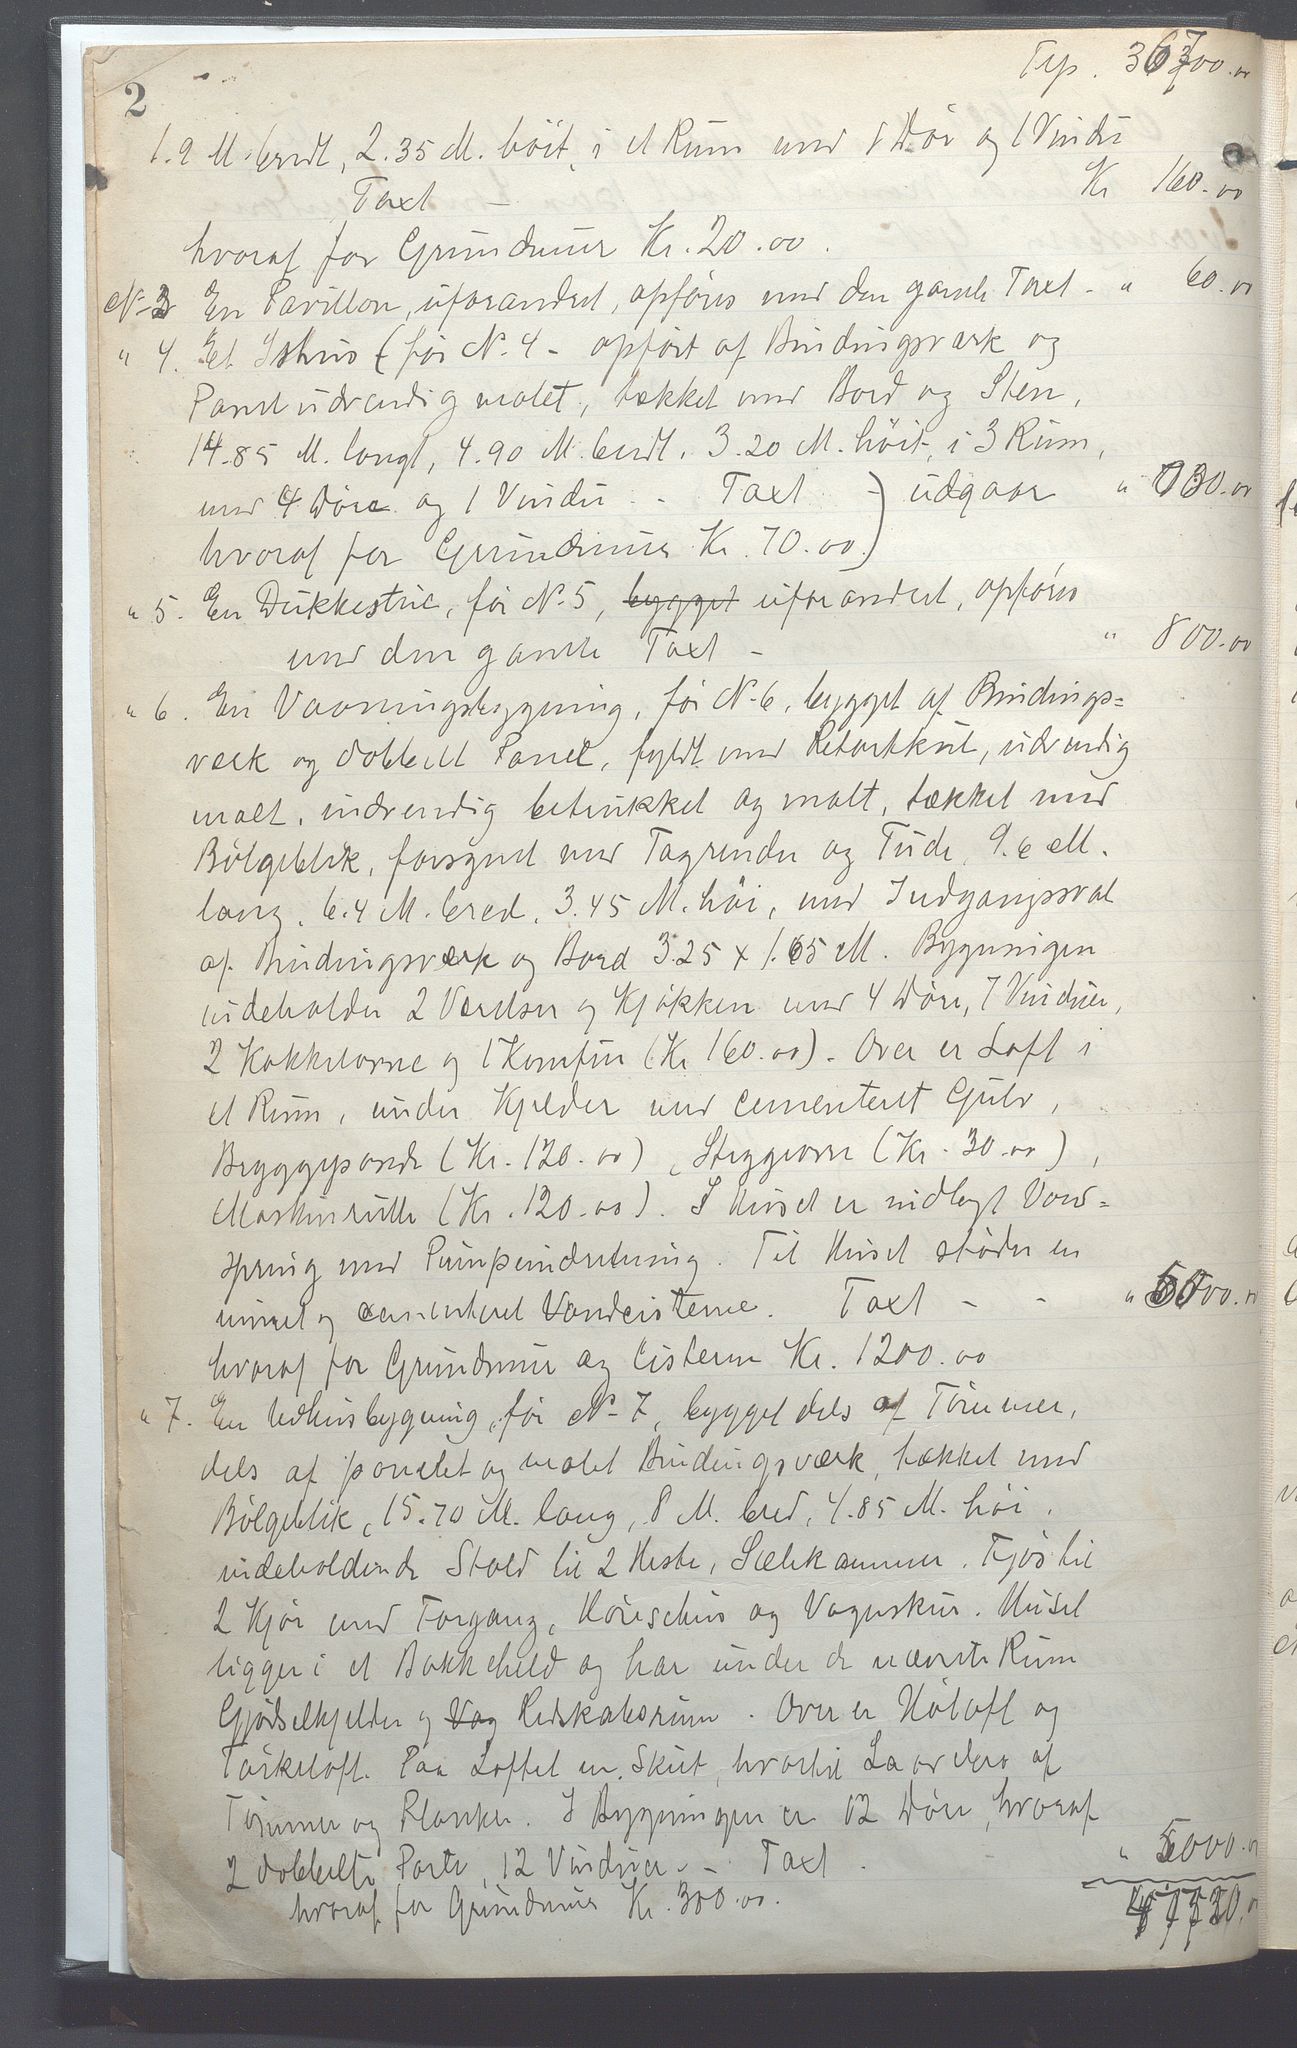 2
Trp. 36700.00
1.9 M. bredt, 2.35 M. höit, i et Rum med 1 Dör og 1 Vindu
Taxt - Kr 160.00
hvoraf for Grundmur Kr. 20.00.
N-3 En Pavillon, uforandret, opföres med den gamle Taxt - " 60.00
" 4. Et Ishus (för N. 4 - opfört af Bindingsværk og
Panel udvendig malet, tækket med Bord og Sten,
14.85 M. langt, 4.90 M. bredt, 3.20 M. höit, i 3 Rum,
med 4 Döre og 1 Vindu - Taxt -) udgaar "
hvoraf for Grundmur Kr. 70.00.)
" 5. En Dukkestue, för N-5, bygget uforandret, opföres
med den gamle Taxt - " 800.00
" 6. En Vaaningsbygning, för N-6, bygget af Bindings=
verk og dobbelt Panel, fyldt med Retortkul, udvendig
malt, indvendig betrukket og malt, tækket med
Bölgeblik, forsynet med Tagrender og Tude, 9.6 M.
lang, 6.4 M. bred, 3.45 M. höi, med Indgangssval
af Bindingsværk og Bord 3.25 x 1.65 M. Bygningen
indeholder 2 Værelser og Kjökken med 4 Döre, 7 Vinduer,
2 Kakkelovne og 1 Komfur (Kr 160.00). Over er Loft i
et Rum, under Kjelder med cementeret Gulv,
Bryggepande (Kr. 120.00), Strygeovn (Kr. 30.00),
Maskinrulle (Kr. 120.00). I Huset er indlagt Vand=
spring med Pumpeindretning. Til Huset stöder en
muret og cementeret Vandcisterne. Taxt - - "
hvoraf for Grundmur og Cisterne Kr. 1200.00
" 7. En Udhusbygning, för N-7, bygget dels af Tömmer,
dels af panelet og malet Bindingsværk, tækket med
Bölgeblik, 15.70 M. lang, 8 M. bred, 4.85 M. höi,
indeholdende Stald til 2 Heste, Selekammer, Fjös til
2 Kjör med Forgang, Hönsehus og Vognskur. Huset
ligger i et Bakkeheld og har under de nævnte Rum
Gjödselkjelder og Vog Redskabsrum. Over er Höloft og
Törkeloft. Paa Loftet en Skut, hvortil Laavebro af
Tömmer og Planker. I Bygningen er 12 Döre, hvoraf
2 dobbelte Porte, 12 Vinduer - - Taxt - " 5000.00
hvoraf for Grundmur Kr. 300.00.